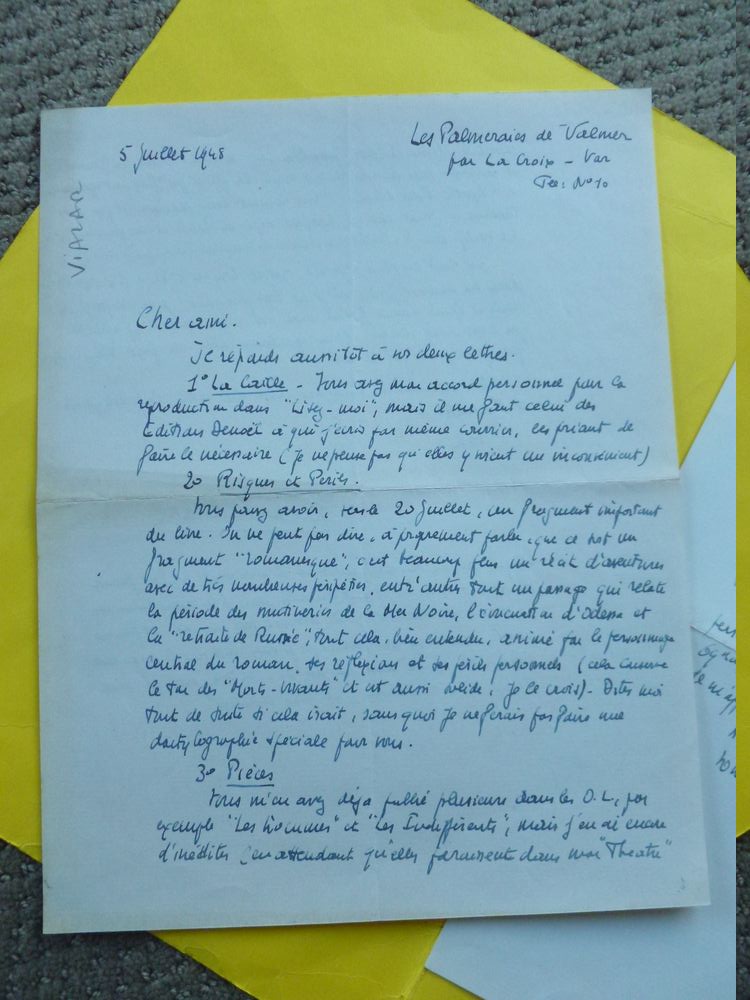 5 Juillet 1948
Les Palmeraies de Valmer
par La Croix - Var
Tel: No 10
VIALAR
Cher ami.
Je réponds aussitôt à vos deux lettres.
1° La Caille - Vous avez mon accord personnel pour la
reproduction dans "Lisez-moi", mais il me faut celui des
Editions Denoël à qui j'écris par même courrier, les priant de
faire le nécessaire (je ne pense pas qu'elles y voient un inconvénient)
2o Risques et Périls.
Vous pouvez avoir, vers le 20 Juillet, un fragment important
du livre. On ne peut pas dire, à proprement parler, que ce soit un
fragment "romanesque", c'est beaucoup plus un récit d'aventures
avec de très nombreuses péripéties, entr'autres tout un passage qui relate
la période des mutineries de la Mer Noire, l'évacuation d'Odessa et
la "retraite de Russie", tout cela, bien entendu, animé par le personnage
central du roman, ses réflexions et ses périls personnels (cela
le ton des "Morts-vivants" et est aussi solide, je le crois) - Dites moi
tout de suite si cela irait, sans quoi je ne ferais pas faire une
dactylographie spéciale pour vous.
3o Pièces
Vous m'en avez déja publié plusieurs dans les O.L., par
exemple "Les Hommes" et "Les Indifférents", mais j'en ai encore
d'inédites (en attendant qu'elles paraissent dans mon "Théatre"